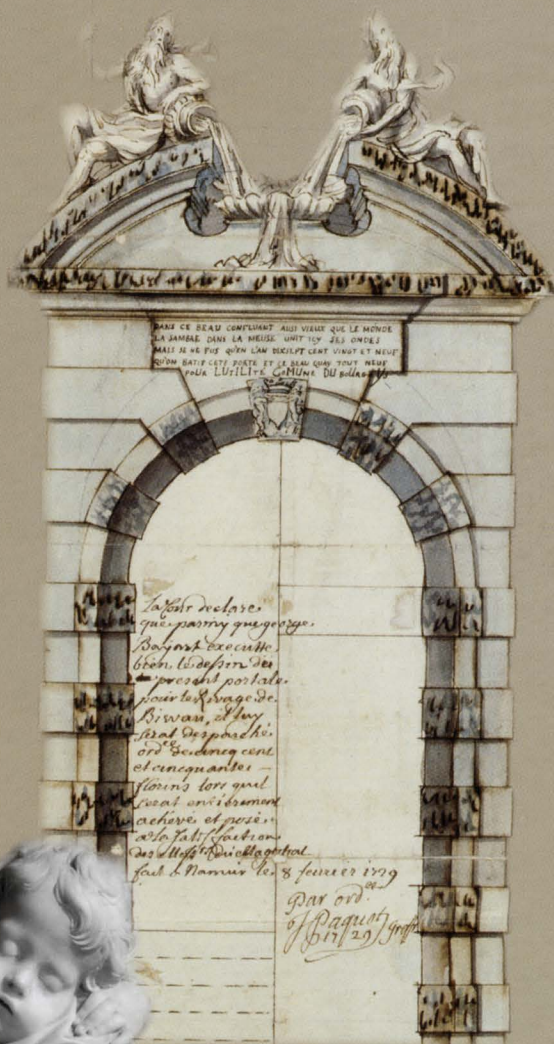 DANS CE BEAU CONFLUANT AUSI VIEUX QUE LE MONDE
LA SAMBRE DANS LA MEUSE UNIT ICY SES ONDES
MAIS SE NE FUS QU'EN L'AN DIXSEPT CENT VINGT ET NEUF
QU'ON BATIT CETE PORTE ET CE BEAU QUAY TOUT NEUF
POUR LUTILITE COMUNE DU
La Cour declare
que parmy que george
Bayart executte
bien le dessin du
present portale
pour le Rivage de
Biwan, il luy
serat despaché
ord.ce de cincq cent
et cincquante
florins lors quil
serat entierement
achevé et posé
a la satisfaction
des Mess.rs du Magestrat
fait à Namur le 8 fevrier 1729
Par ord.ce
J Paquot greff
1729